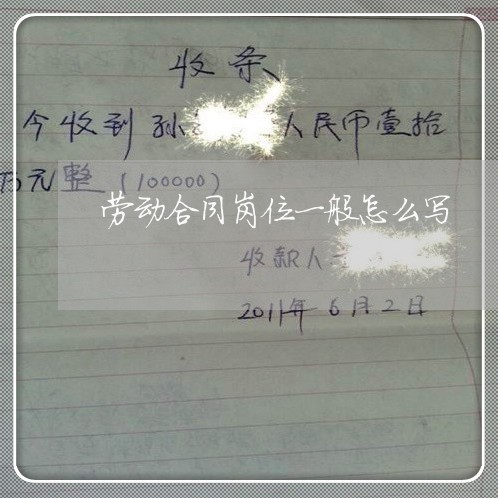 收条
今收到孙 人民币壹拾
万元整（100000）
劳动合同岗位一般怎么写
收款人
2011年6月2日